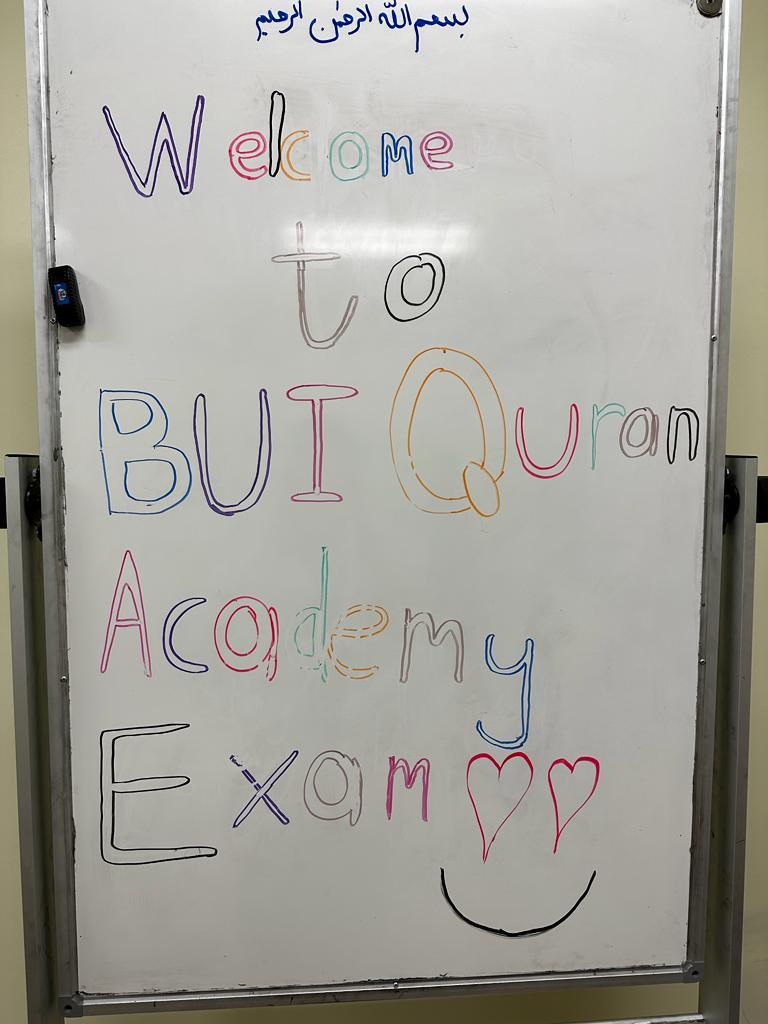 بسم الله الرحمن الرحيم
Welcome
to
BUI Quran
Academy
Exam